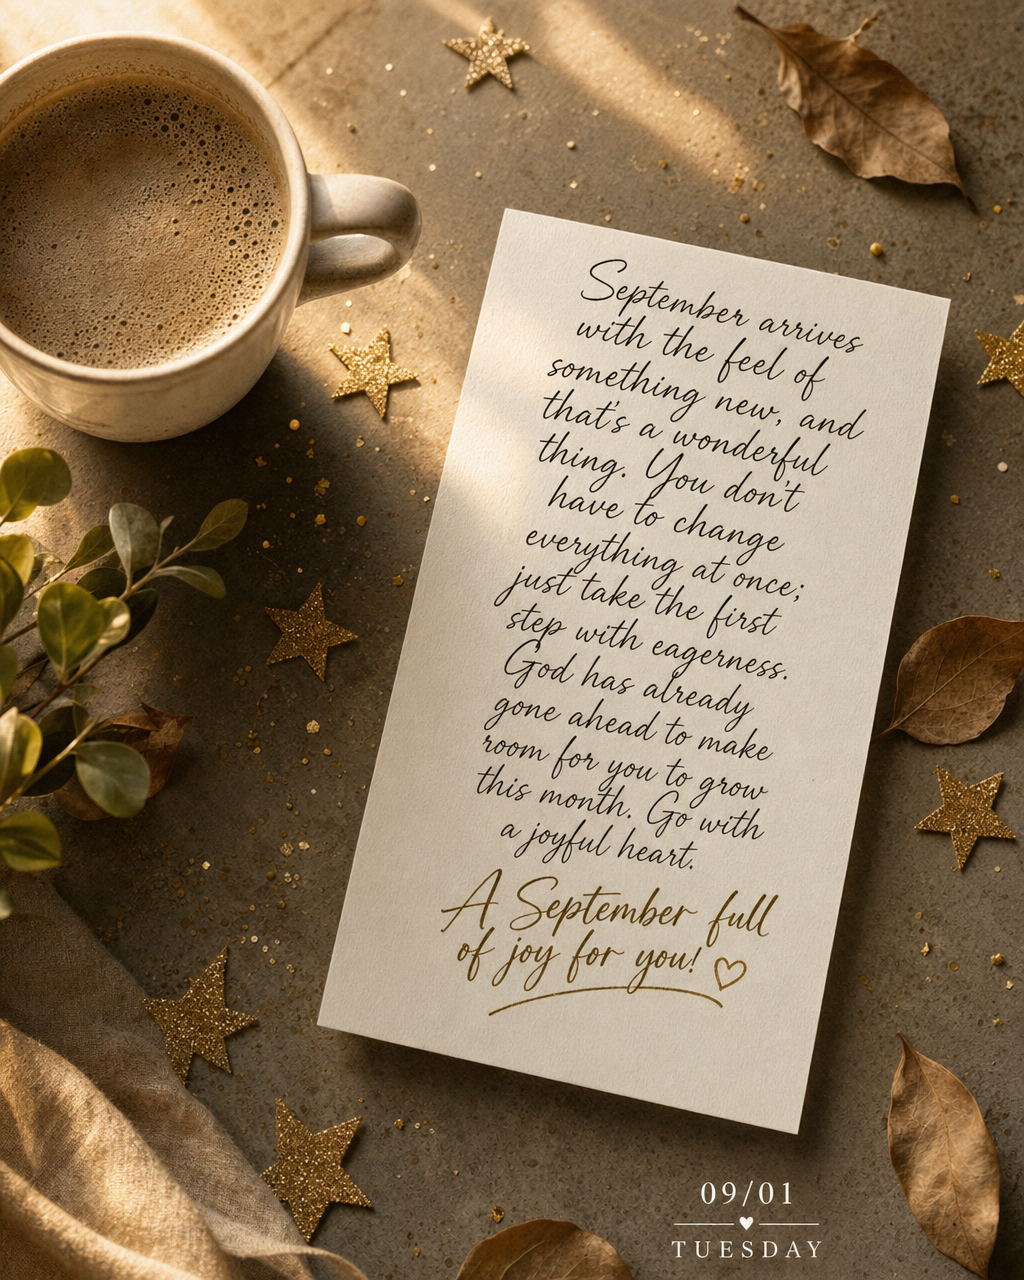 September arrives
with the feel of
something new, and
that's a wonderful
thing. You don't
have to change
everything at once;
just take the first
step with eagerness.
God has already
gone ahead to make
room for you to grow
this month. Go with
a joyful heart.
A September full
of joy for you!
09/01
TUESDAY